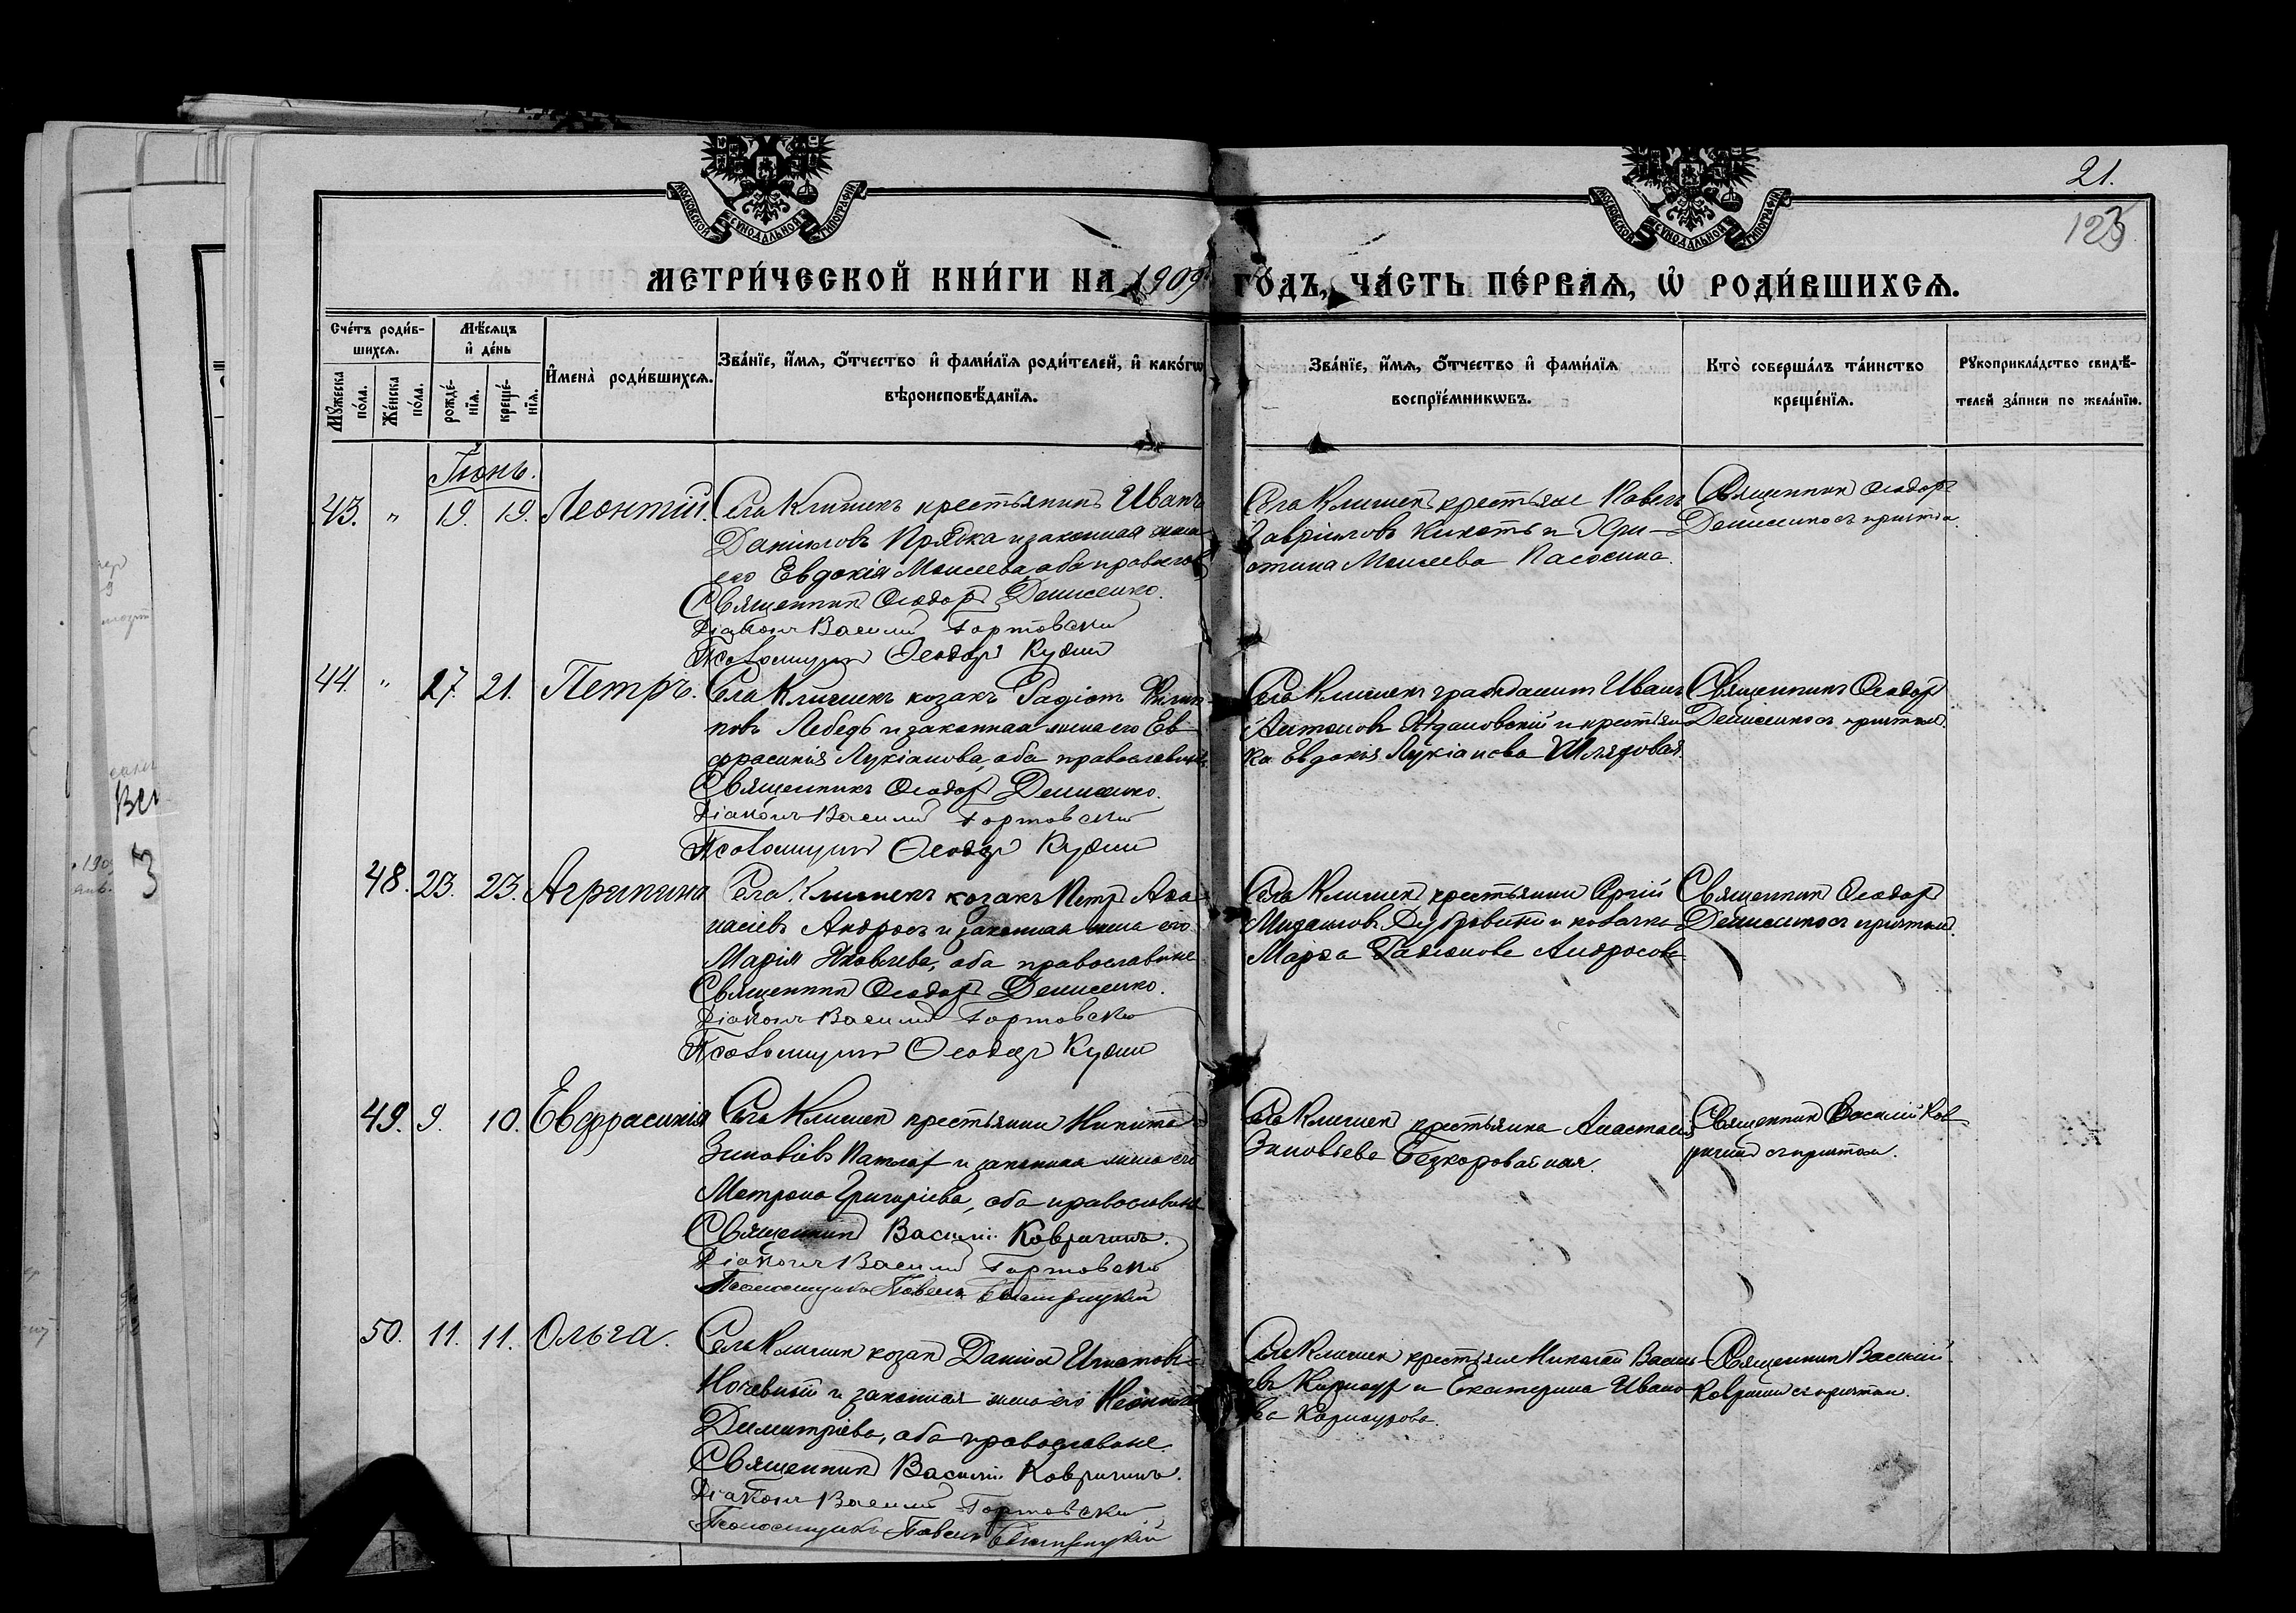 МОСКОВСКОЙ СѴНОДАЛЬНОЙ ТИПОГРАФІИ
МОСКОВСКОЙ СѴНОДАЛЬНОЙ ТИПОГРАФІИ
21.
123
МЕТРИ́ЧЕСКОЙ КНИ́ГИ НА 1909 ГО́ДЪ, ЧА́СТЬ ПЕ́РВАѦ, Ѡ҆ РОДИ́ВШИХСѦ.
Сче́тъ роди́в-
шихсѧ.
Мꙋ́жеска по́ла.
Же́нска по́ла.
Мѣ́сѧцъ
и҆ де́нь
рожде́-
нїѧ.
креще́-
нїѧ.
И҆мена̀ роди́вшихсѧ.
Зва́нїе, и҆́мѧ, ѻ҆́тчество и҆ фами́лїѧ роди́телей, и҆ како́гѡ
вѣроисповѣ́данїѧ.
Зва́нїе, и҆́мѧ, ѻ҆́тчество и҆ фами́лїѧ
воспрїе́мникѡвъ.
Кто̀ соверша́лъ та́инство
креще́нїѧ.
Рꙋкоприкла́дство свидѣ́-
телей за́писи по жела́нїю.
Іюнь.
43. " 19. 19. Леонтій.
Села Клишекъ крестьянинъ Иванъ
Даніиловъ Прядка и законная жена
его Евдокія Моисеева, оба православ
Священникъ Ѳеодоръ Денисенко.
Діаконъ Василій Гортовскій
Псаломщикъ Ѳеодоръ Кудин
Села Клишекъ крестьяне Павелъ
Гавріиловъ Кикоть и Хри-
стина Моисеева
Священникъ Ѳеодоръ
Денисенко съ причтом
44. " 27. 21. Петръ.
Села Клишекъ козакъ Родіонъ Филип-
повъ Лебедь и законная жена его Ев-
фросинія Лукіанова, оба православные
Священникъ Ѳеодоръ Денисенко.
Діаконъ Василій Гортовскій
Псаломщикъ Ѳеодоръ Кудин
Села Клишекъ гражданинъ Иванъ
Антоновъ и крестьян
ка Евдокія Лукіанова
Священникъ Ѳеодоръ
Денисенко съ причтом
48. 23. 23. Агрипина
Села Клишекъ козакъ Петръ Аѳа-
насіевъ Андросъ и законная жена его
Марія Яковлева, оба православные
Священникъ Ѳеодоръ Денисенко.
Діаконъ Василій Гортовскій
Псаломщикъ Ѳеодоръ Кудин
Села Клишекъ крестьянинъ Сергій
Михаиловъ и козачка
Марѳа Андросова
Священникъ Ѳеодоръ
Денисенко съ причтом.
49. 9. 10. Евфросинія
Села Клишекъ крестьянинъ Никита
Зиновіевъ и законная жена его
Матрона Григоріева, оба православные
Священникъ Василій Ковригинъ.
Діаконъ Василій Гортовскій
Псаломщикъ Павелъ
Села Клишекъ крестьянка Анастасія
Зиновьева Безкоровайная.
Священникъ Василій Ков-
ригинъ съ причтом.
50. 11. 11. Ольга.
Села Клишекъ козакъ Даніилъ Игнатовъ
и законная жена его
Димитріева, оба православные.
Священникъ Василій Ковригинъ.
Діаконъ Василій Гортовскій
Псаломщикъ Павелъ
Села Клишекъ крестьяне Николай Васильи-
евъ и Екатерина Ивано-
ва
Священникъ Василій
Ковригинъ съ причтом.